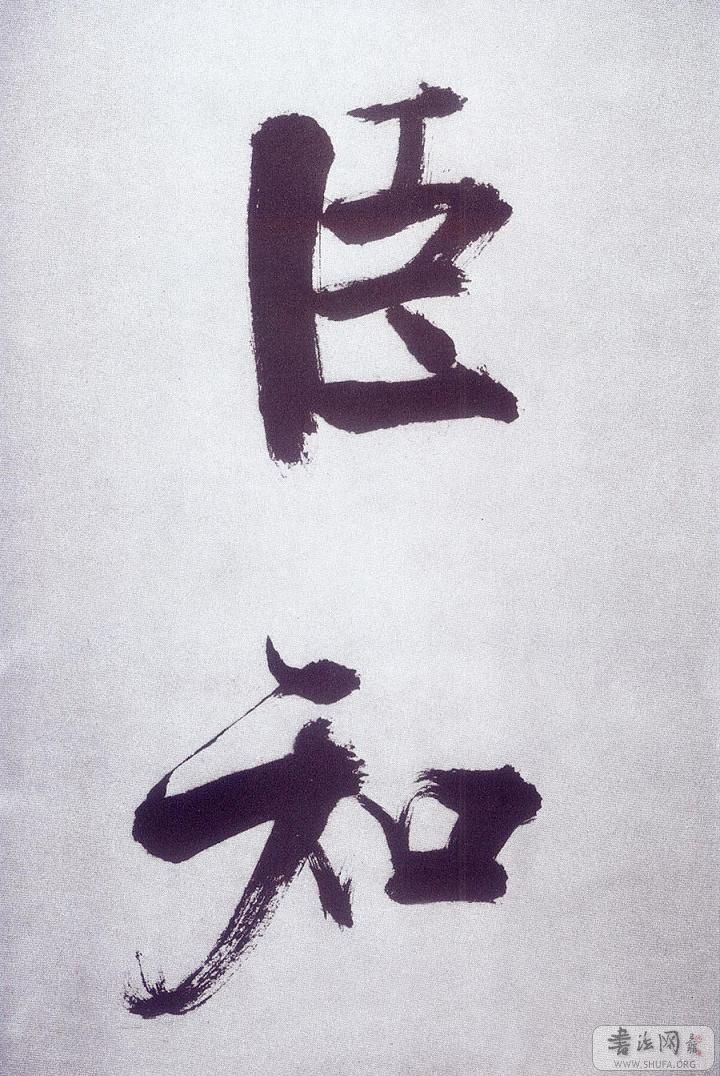 臣知
书法网
WWW.SHUFA.ORG